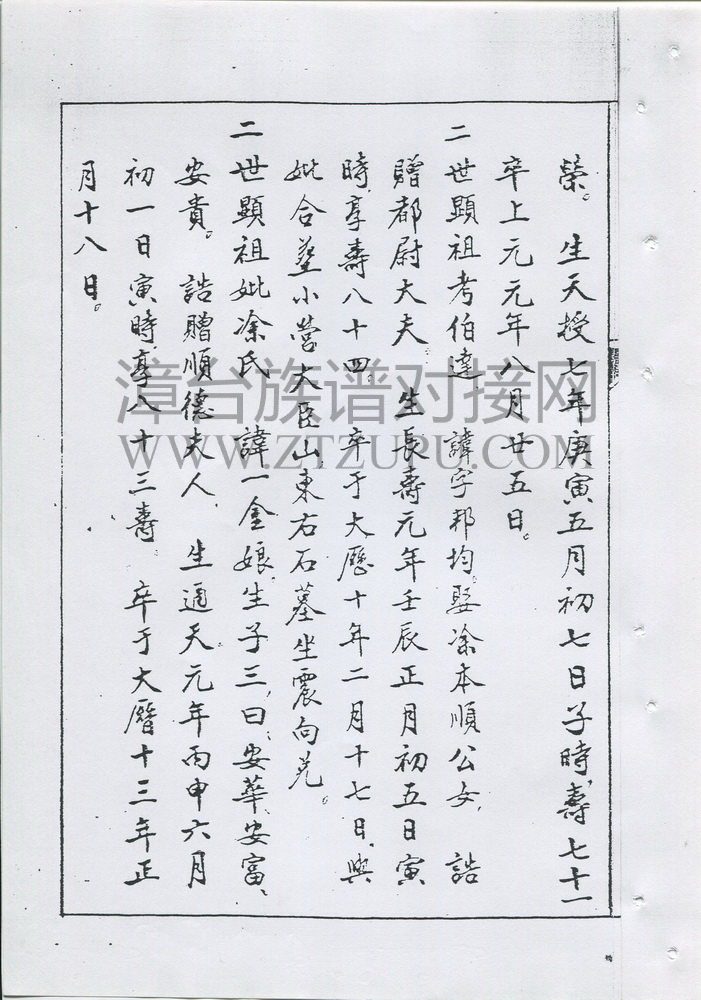 榮。生天授七年庚寅五月初七日子時，壽七十一
卒上元元年八月廿五日。
二世顯祖考伯達，諱字邦均。娶涂本順公女，誥
贈都尉大夫　生長壽元年壬辰正月初五日寅
時，享壽八十四。卒于大歷十年二月十七日，與
妣合塟小营大臣山東右石墓坐震向兑。
二世顯祖妣涂氏　諱一金娘，生子三，曰、安華、安富、
安貴。誥贈順德夫人，生通天元年丙申六月
初一日寅時，享八十三壽　卒于大曆十三年正
月十八日。
漳台族谱对接网
WWW.ZTZUPU.COM